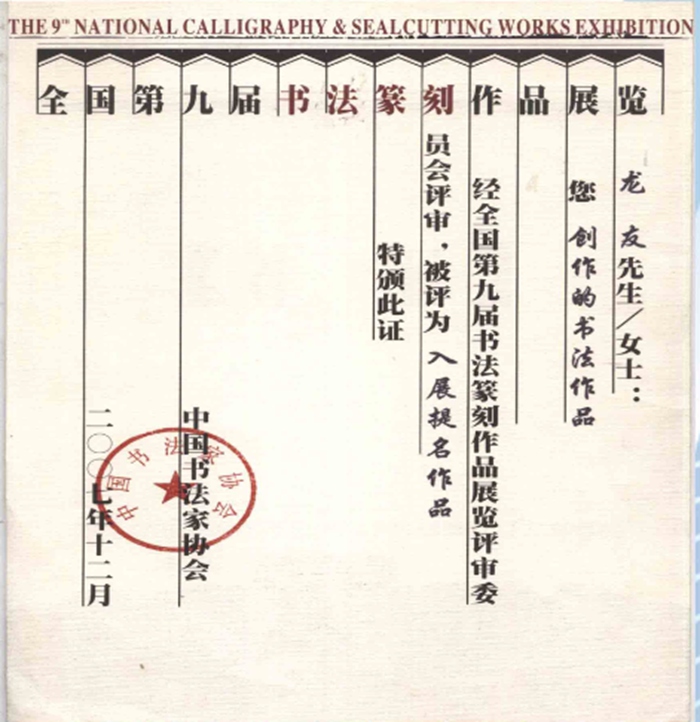 THE 9TH NATIONAL CALLIGRAPHY & SEALCUTTING WORKS EXHIBITION
全国第九届书法篆刻作品展览
龙友先生/女士：
您创作的书法作品
经全国第九届书法篆刻作品展览评审委
员会评审，被评为入展提名作品
特颁此证
中国书法家协会
二〇〇七年十二月
中国书法家协会